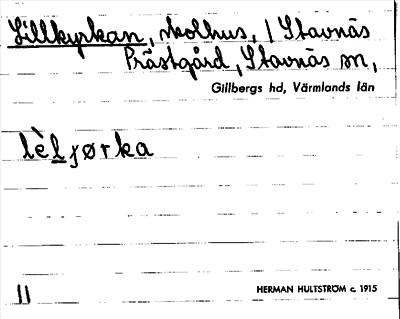 Lillkyrkan, skolhus, / Stavnäs
Prästgård, Stavnäs sn,
Gillbergs hd, Värmlands län
lèlʃørka
11
HERMAN HULTSTRÖM c. 1915